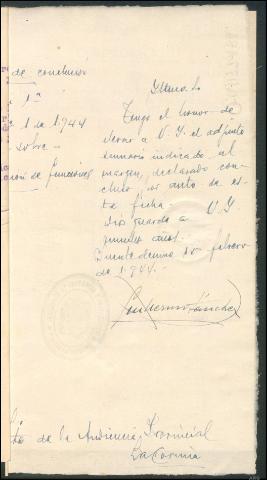 de conclusión
1º
1 de 1.944
sobre
de funciones
Iltmo. Sr.
Tengo el honor de
elevar a V. I. el adjunto
sumario indicado al
margen, declarado con-
cluso por auto de es-
ta fecha.
Dios guarde a V. I.
muchos años.
Puentedeume 10 febrero
de 1.944.
Guillermo Sánchez
de la Audiencia Provincial
La Coruña